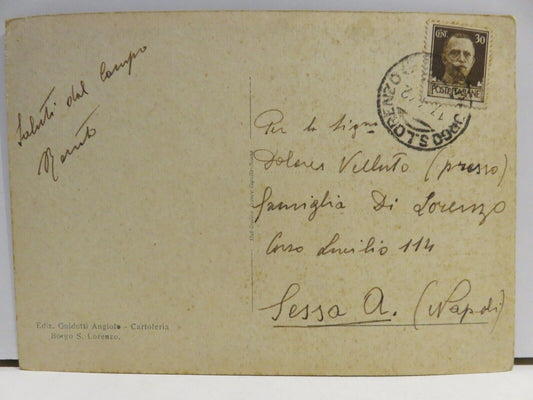 Saluti dal Campo
CENT. 30
POSTE ITALIANE
BORGO S. LORENZO
Per la Sign.
Dolores Velluto (presso)
famiglia Di Lorenzo
Corso Lucilio 114
Sessa A. (Napoli)
Ediz. Guidotti Angiolo - Cartoleria
Borgo S. Lorenzo.